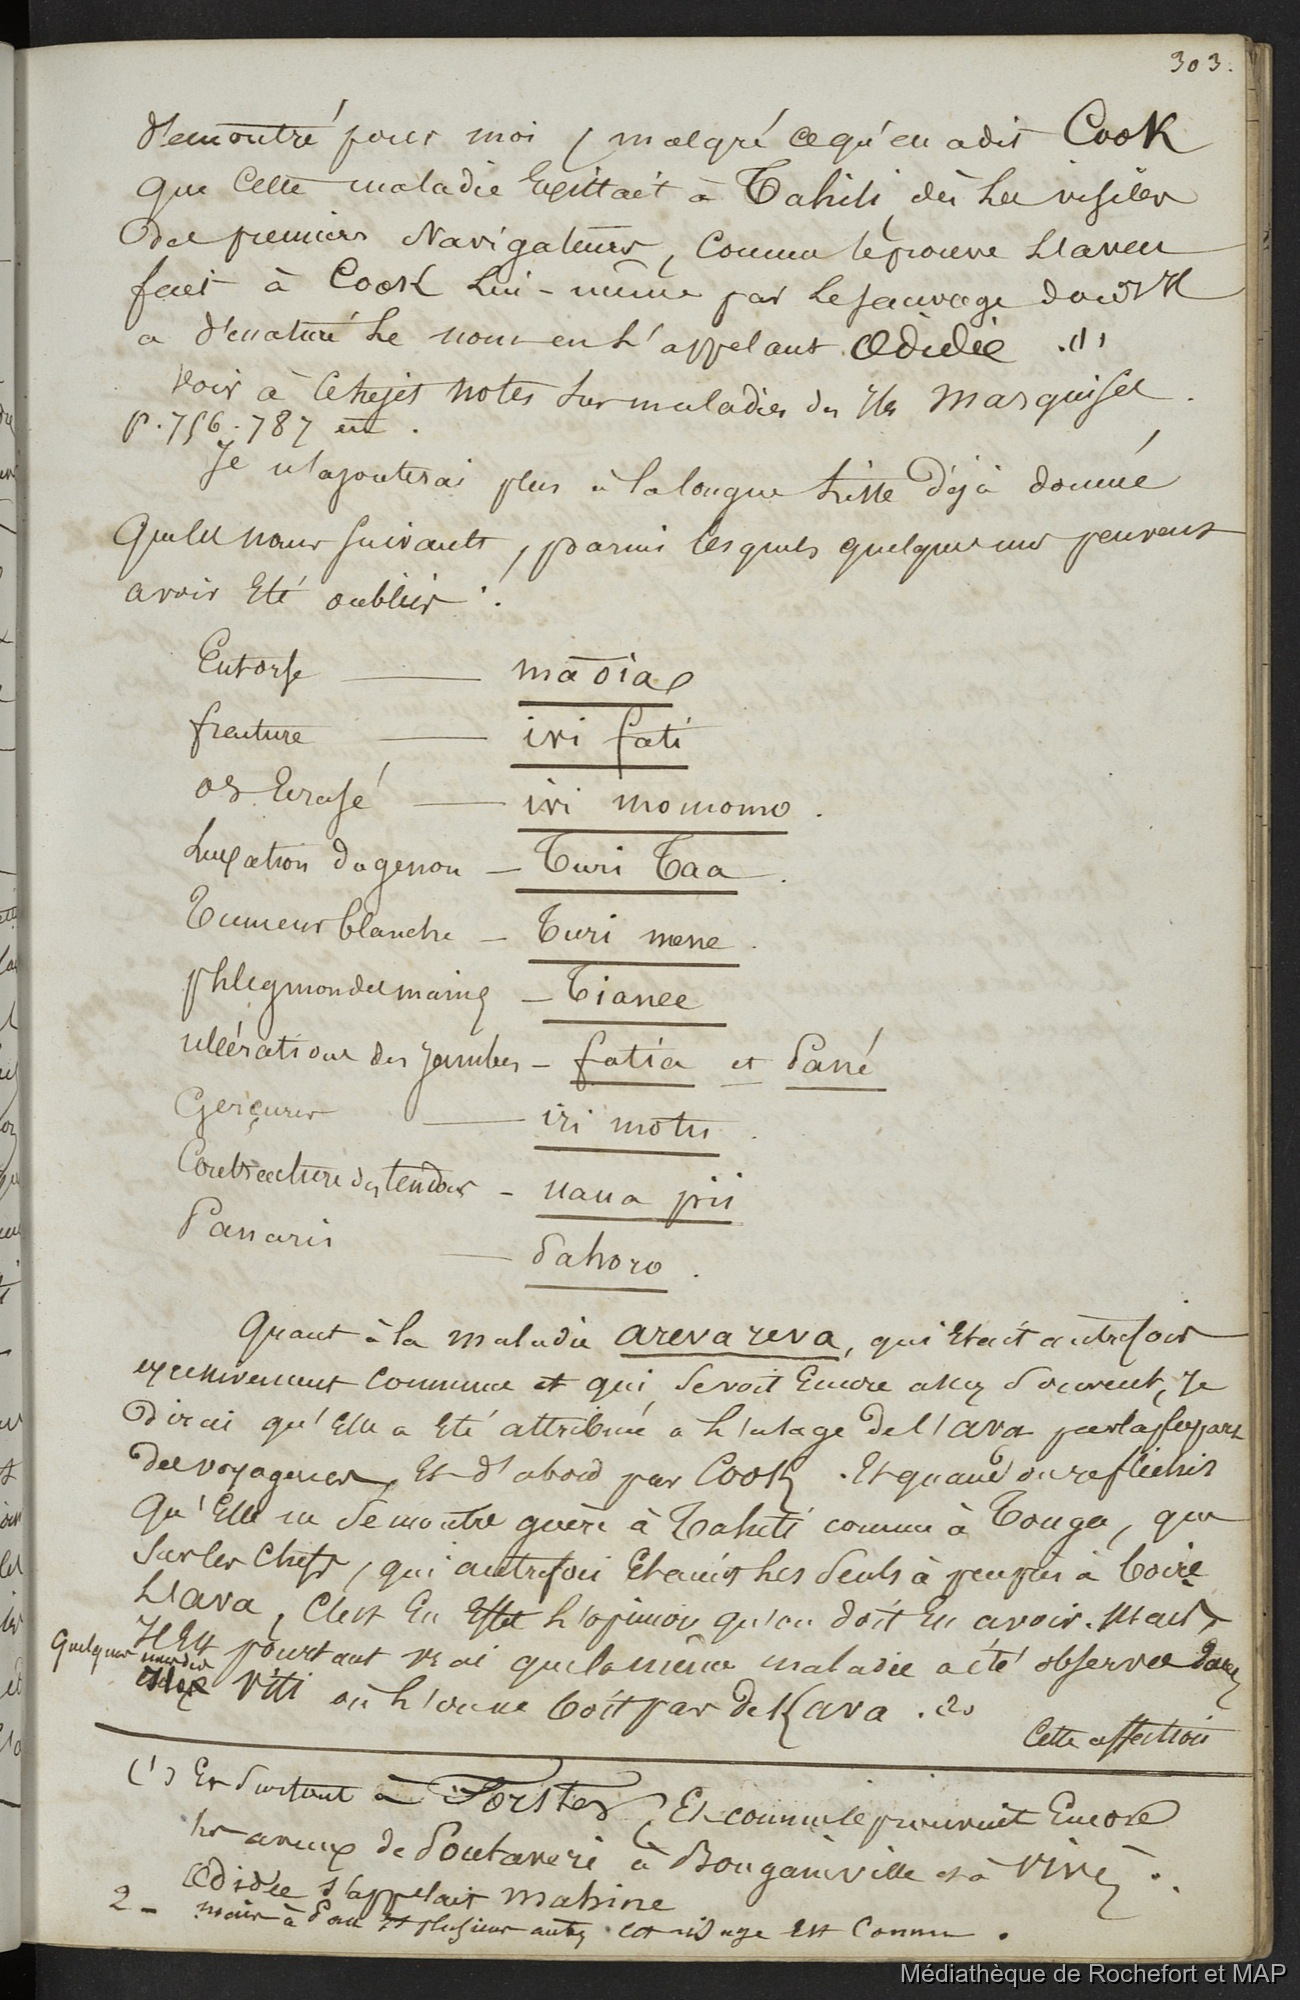 303.
démontré pour moi, malgré ce qu'en a dit Cook
que cette maladie existait à Tahiti, dès les visites
des premiers Navigateurs, comme le prouve l'aveu
fait à Cook lui-même par le sauvage dont il
a dénaturé le nom en l'appelant Œdidée .(1)
Voir à ce sujet notes sur maladies des Iles Marquises.
p. 756. 787 etc.
Je n'ajouterai plus à la longue liste déjà donnée
que les noms suivants, parmi lesquels quelques uns peuvent
avoir été oubliés :
Entorse — maoiae
fracture — ivi fati
os écrasé — ivi momomo.
Luxation du genou — Turi Taa.
Tumeur blanche — Turi mene.
phlegmon des mains — Tianee
ulcérations des jambes — fatia et Pané
Gerçures — iri motu.
Contracture des tendons — uaua pii
Panaris — Pahoro.
Quant à la maladie arevareva, qui était autrefois
excessivement commune et qui se voit encore assez souvent, je
dirai qu'elle a été attribuée à l'usage de l'ava par la plupart
des voyageurs, et d'abord par Cook. Et quand on réfléchit
qu'elle ne se montre guère à Tahiti comme à Tonga, que
sur les chefs, qui autrefois étaient les seuls à peu près à boire
l'ava, c'est en effet l'opinion qu'on doit en avoir. Mais,
Il est pourtant vrai que la même maladie a été observée dans
quelques unes des
Iles Viti où l'on ne boit pas de Kava. (2)
Cette affection
(1) Et surtout à Forster, Et comme le prouvent encore
les aveux de Poutaveri à Bougainville et à Vivès.
Œdidée s'appelait Mahine
2 - mais à Pau et plusieurs autres cet usage est connu.
Médiathèque de Rochefort et MAP